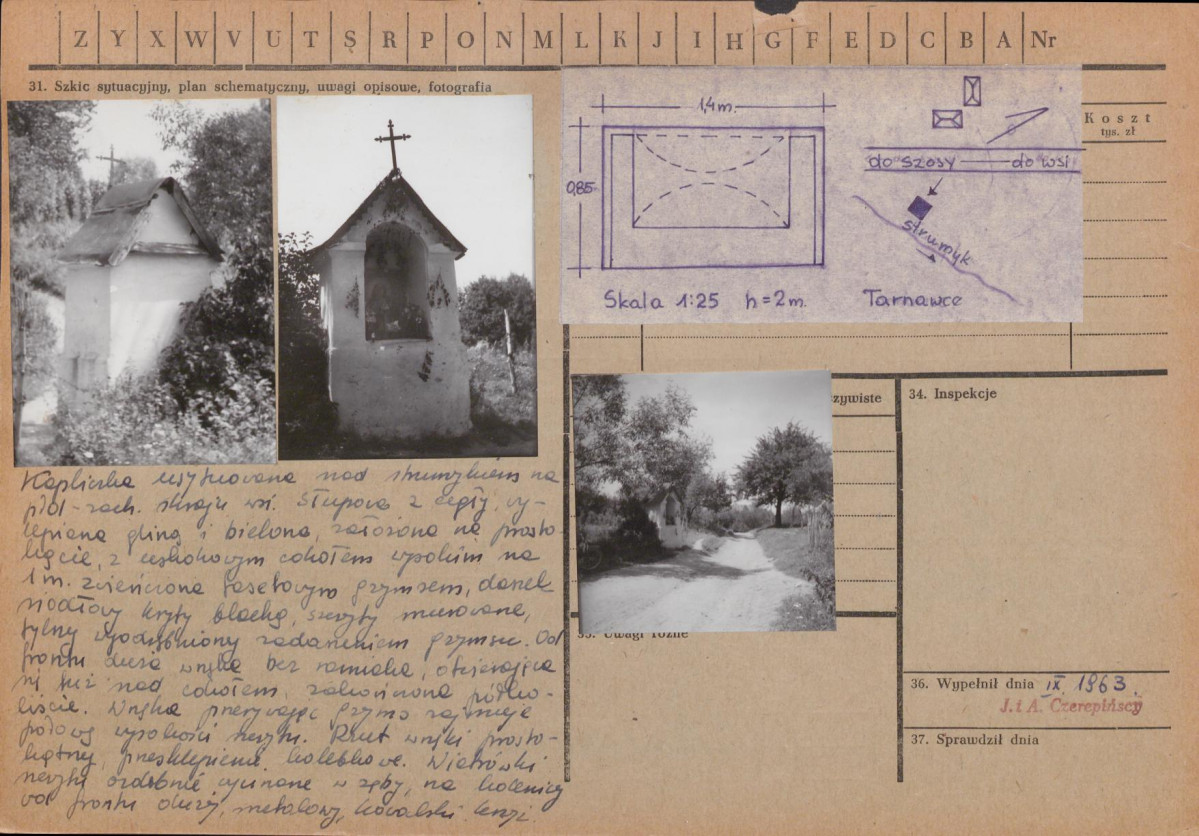 Z Y X W V U T S R P O N M L K J I H G F E D C B A Nr
31. Szkic sytuacyjny, plan schematyczny, uwagi opisowe, fotografia
1,4 m.
0,85
Skala 1:25 h=2m.
do szosy do wsi
strumyk
Tarnawce
Koszt
tys. zł
Kapliczka usytuowana nad strumykiem na
płd-zach. skraju wsi. Słupowa z cegły, wy-
lepiana gliną i bielona, założona na prosto-
kącie, z uskokowym cokołem wysokim na
1 m. zwieńczona fasetowym gzymsem, daszek
siodłowy kryty blachą, szczyty murowane,
tylny wyodrębniony gzymsu. Od
frontu duża wnęka bez otwierająca
się tuż nad cokołem, zakończona półko-
liście. Wnęka przerywając gzyms zajmuje
połowę wysokości szczytu. Rzut wnęki prosto-
kątny, przesklepienie kolebkowe. Wiatrówki
szczytu ozdobnie wycinane w zęby, na kalenicy
od frontu duży, metalowy, kowalski krzyż.
zywiste
34. Inspekcje
35. Uwagi różne
36. Wypełnił dnia IX 1963.
J. i A. Czerepińscy
37. Sprawdził dnia